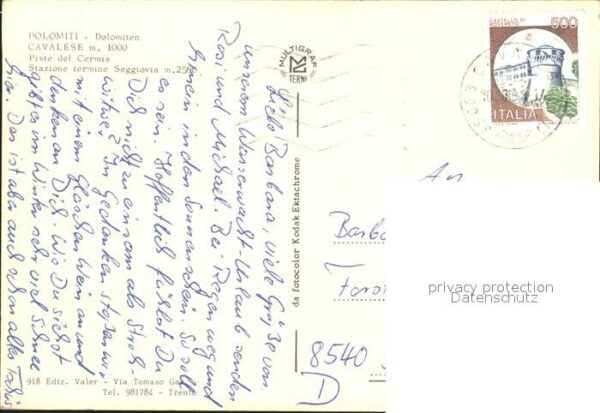 DOLOMITI - Dolomiten
CAVALESE m. 1000
Piste del Cermis
Stazione termine Seggiovia m. 2
MULTIGRAF
TERNI
CASTELLO DI
ROVERETO
500
ITALIA
Liebe Barbara, viele Grüße von
unserem Wasserwacht-Urlaub senden
Rosi und Michael. Bei Regen weg und
hinein in den Sonnenschein. So soll
es sein. Hoffentlich fühlst Du
Dich nicht zu einsam als Stroh-
witwe? In Gedanken stoßen wir
mit einem Gläschen Wein an und
denken an Dich. Wie Du siehst
gibt es im Winter sehr viel Schnee
hier. Das ist aber auch schon alles
da fotocolor Kodak Ektachrome
An
8540
D
918 Ediz. Valer - Via Tomaso
Tel. 981784 - Trento
privacy protection
Datenschutz